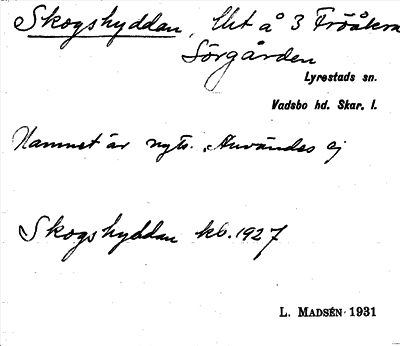 Skogshyddan, lht å 3 Fröåkra
Sörgården
Lyrestads sn.
Vadsbo hd. Skar. l.
Namnet är nytt. Användes ej
Skogshyddan kb. 1927
L. Madsén 1931